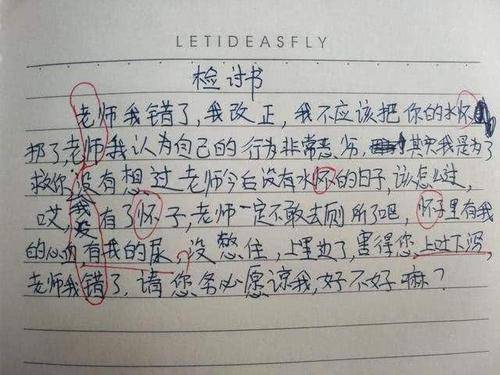 LETIDEASFLY
检讨书
老师我错了,我改正,我不应该把你的水怀
扔了,老师我认为自己的行为非常恶劣,其实我是为了
救你,没有想过老师今后没有水怀的日子,该怎么过,
哎,我没有了怀子,老师一定不敢去厕所了吧,怀子里有我
的心血有我的尿,没憋住,上里边了,害得您上吐下泻,
老师我错了,请您务必愿谅我,好不好嘛?